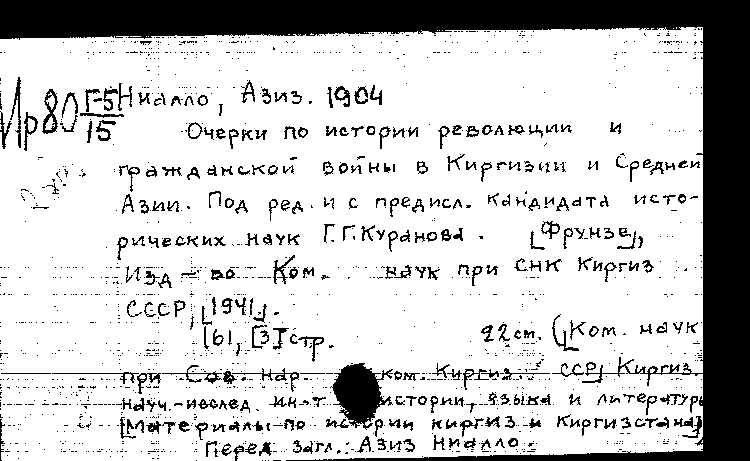 Ир80 Г-5/15 Ниалло, Азиз. 1904
Очерки по истории революции и
гражданской войны в Киргизии и Средней
Азии. Под ред. и с предисл. кандидата исто-
рических наук Г.Г.Куранова. [Фрунзе],
Изд-во Ком. наук при СНК Киргиз
ССР, [1941].
161, [3] стр. 22 см. ([Ком. наук
при Сов. нар. ком. Киргиз. ССР] Киргиз.
науч.-исслед. ин-т истории, языка и литературы
[Материалы по истории киргиз и Киргизстана]
Перед загл.: Азиз Ниалло.